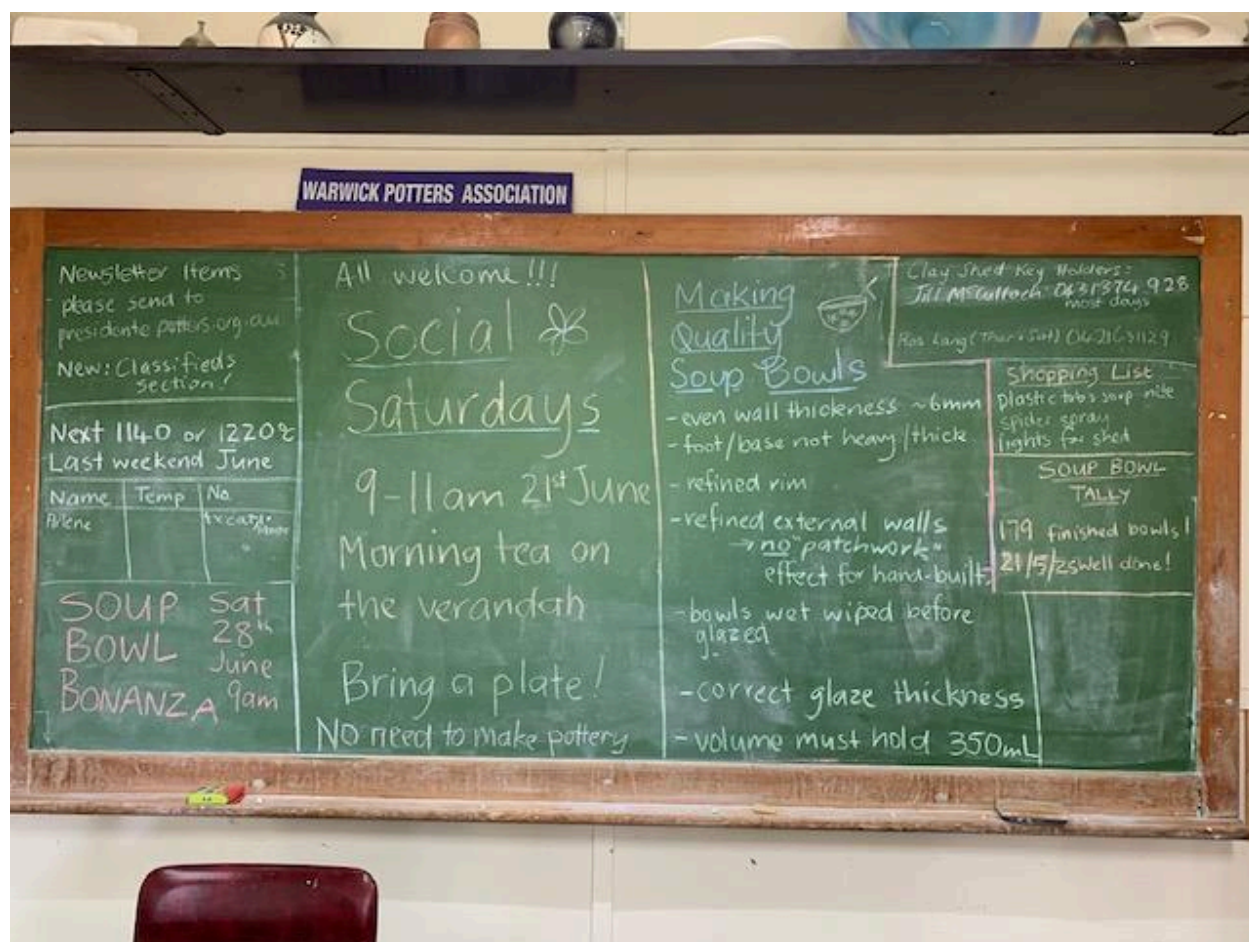 WARWICK POTTERS ASSOCIATION
Newsletter Items
please send to
New: Classifieds
section!
Next 1140 or 1220°C
Last weekend June
Name Temp No.
SOUP Sat
BOWL 28th
June
BONANZA 9am
All welcome!!!
Social
Saturdays
9-11am 21st June
Morning tea on
the verandah
Bring a plate!
No need to make pottery
Making
Quality
Soup Bowls
- even wall thickness ~6mm
- foot/base not heavy/thick
- refined rim
- refined external walls
→ no "patchwork"
effect for hand-built
- bowls wet wiped before
glazed
- correct glaze thickness
- volume must hold 350mL
Clay Shed Key Holders:
Jill McCulloch 0431374 928
most days
Lang (Thur + Sat)
Shopping List
plastic tubs soup nite
spider spray
lights for shed
SOUP BOWL
TALLY
179 finished bowls!
21/5/25 well done!